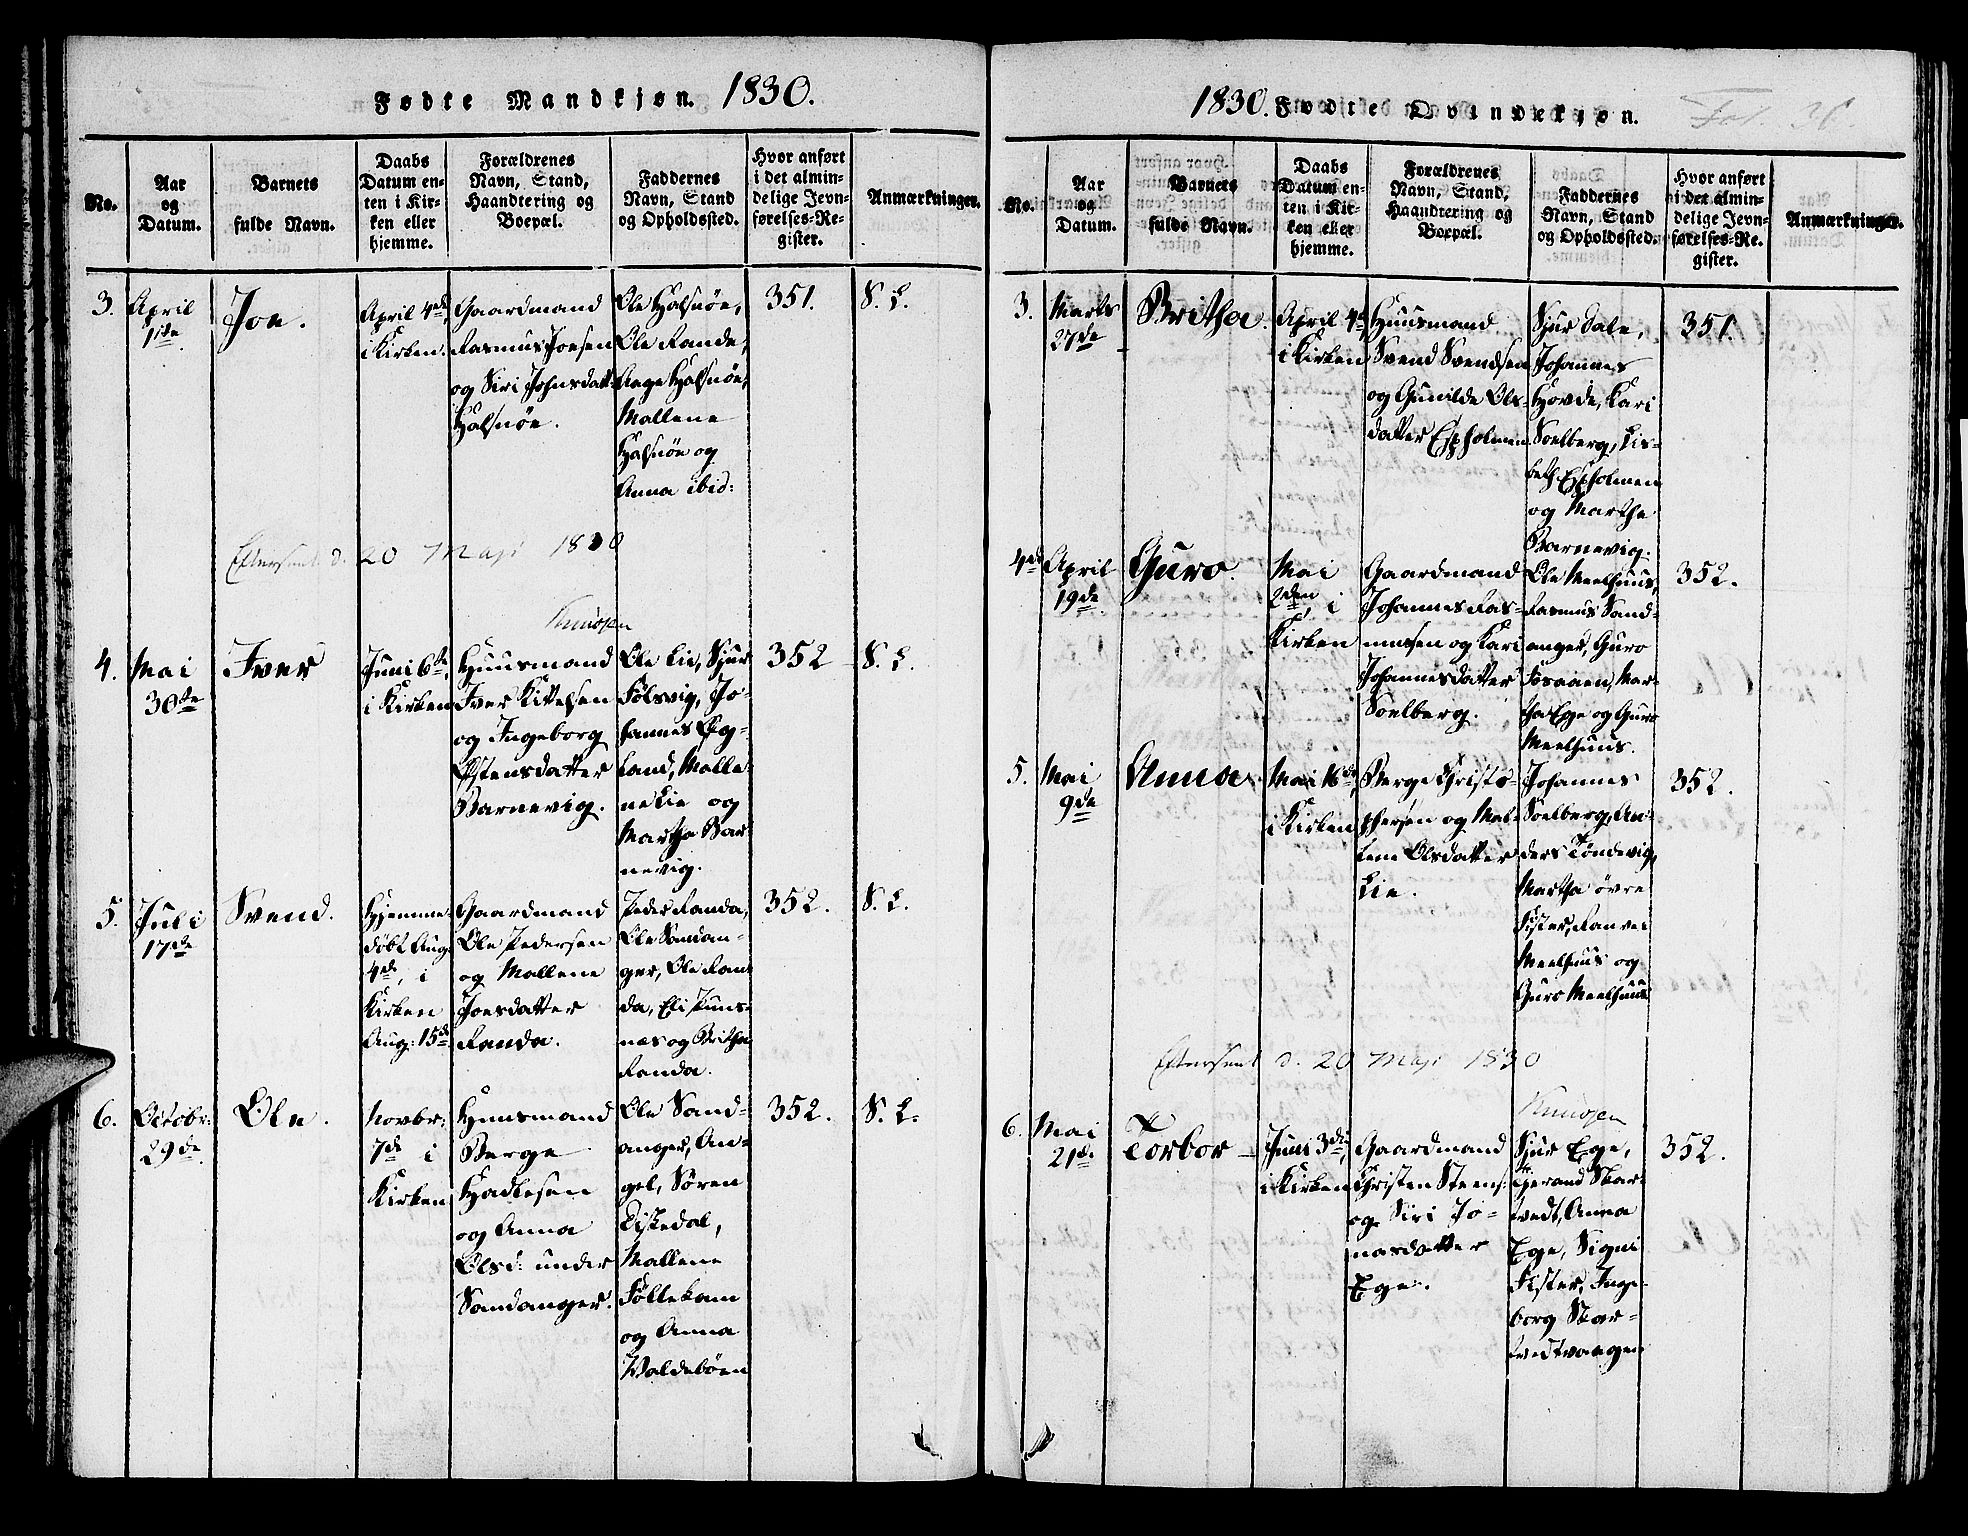 Fødte Mandkjøn. 1830.
No.
Aar
og
Datum.
Barnets
fulde Navn.
Daabs
Datum en-
ten i Kir-
ken eller
hjemme.
Forældrenes
Navn, Stand,
Haandtering og
Boepæl.
Faddernes
Navn, Stand
og Opholdssted.
Hvor anført
i det almin-
delige Jevn-
førelses-Re-
gister.
Anmærkninger.
3.
April
1ste
Jon.
April 4de,
i Kirken.
Gaardmand
Rasmus Joesen
og Siri Johnsdatt:
Halsnøe.
Ole Halsnøe,
Ole Rande,
Aage Halsnøe,
Mallene
Halsnøe og
Anna ibid:
351.
S. L.
Efterseet d. 20 Maji 1830
Knudsen
4.
Mai
30te
Iver
Juni 6te,
i Kirken
Huusmand
Iver Kittelsen
og Ingeborg
Østensdatter
Barnevig.
Ole Lie, Sjur
Følsvig, Jo-
hannes Øg-
land, Malle-
ne Lie og
Martha Bar
nevig.
352
S. L.
5.
Juli
17de
Svend.
Hjemme-
døbt Aug:
4de, i
Kirken
Aug: 15de
Gaardmand
Ole Pedersen
og Mallene
Joesdatter
Randa.
Peder Randa,
Ole Sandan-
ger, Ole Ran
da, Eli Puns-
nes og Britha
Randa.
352.
S. L.
6.
Octobr:
29de
Ole.
Novbr:
7de i
Kirken
Huusmand
Berge
Hadlesen
og Anna
Olsd: under
Sandanger.
Ole Sand-
anger, An-
gel, Søren
Diskedal,
Mallene
Føllekam
og Anna
Valdebøen
352.
S. L.
1830. Fødte Qvindekjøn. Fol. 36.
No.
Aar
og
Datum.
Barnets
fulde Navn.
Daabs
Datum en-
ten i Kir-
ken eller
hjemme.
Forældrenes
Navn, Stand,
Haandtering og
Boepæl.
Faddernes
Navn, Stand
og Opholdssted.
Hvor anført
i det almin-
delige Jevn-
førelses-Re-
gister.
Anmærkninger.
3.
Marts
27de
Britha.
April 4de,
i Kirken
Huusmand
Svend Svendsen
og Gunilde Ols-
datter Espholmen.
Sjur Dale,
Johannes
Hovde, Kari
Soelberg, Lis-
beth Espholmen
og Martha
Barnevig.
351.
4de
April
19de
Guro.
Mai
2den, i
Kirken
Gaardmand
Johannes Ras-
mussen og Kari
Johannesdatter
Soelberg.
Ole Meelhuus,
Rasmus Sand-
anger, Guro
Fosaaen, Mar-
tha Ege og Guro
Meelhuus.
352.
5.
Mai
9de
Anna.
Mai 16de,
i Kirken
Berge Christo-
phersen og Mal-
lene Olsdatter
Lie.
Johannes
Soelberg, An-
ders Tøndevig,
Martha øvre
Fister, Ranvei
Meelhuus og
Guro Meelhuus
352.
Efterseet d. 20 Maji 1830
Knudsen
6.
Mai
21de
Torbor
Juni 3die,
i Kirken
Gaardmand
Christen Steens:
og Siri Jo-
nasdatter
Ege.
Sjur Ege,
Tjerand Skar-
tvedt, Anna
Ege, Signi
Fister, Inge-
borg Skar-
tvedtvaagen
352.